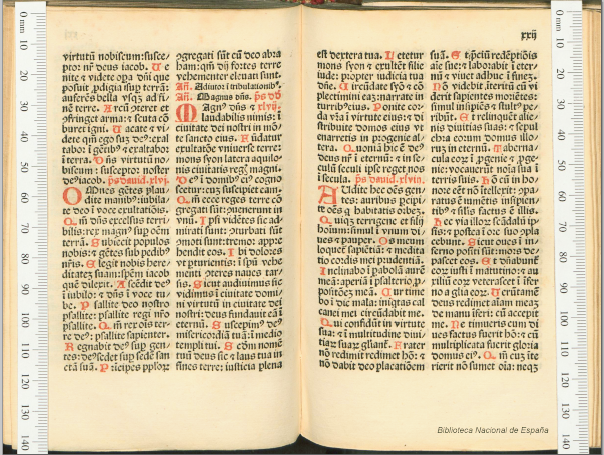 virtutū nobiscum: susce⸗
ptor nr̄ deus iacob. Ue
nite ⁊ videte opa dn̄i que
posuit ꝓdigia suꝑ terrā:
auferēs bella vsqꝫ ad fi⸗
nē terre. Arcū ꝯteret et
ꝯfringet arma: ⁊ scuta cō
buret igni. Uacate ⁊ vi⸗
dete qm̄ ego suꝫ deꝰ: exal
tabor ī gētibꝰ ⁊ exaltabor
ī terra. Dn̄s virtutū no⸗
biscum: susceptor noster
deꝰ iacob. ps dauid. xlvj.
Omnes gētes plau⸗
dite manibꝰ: iubila⸗
te deo ī voce exultatiōis.
Qm̄ dn̄s excelsus terri
bilis: rex magnꝰ suꝑ oēm
terrā. Subiecit populos
nobis: ⁊ gētes sub pedibꝰ
nr̄is. Elegit nobis here⸗
ditateꝫ suam: spēm iacob
quē dilexit. Ascēdit deꝰ
ī iubilo: ⁊ dn̄s ī voce tu⸗
be. Psallite deo nostro
psallite: psallite regi nr̄o
psallite. Qm̄ rex oīs ter⸗
re deꝰ: psallite sapienter.
Regnabit deꝰ suꝑ gen⸗
tes: deꝰ sedet suꝑ sedē san
ctā suā. Prīcipes pplorꝫ
ꝯgregati sūt cū deo abra
ham: qm̄ dij fortes terre
vehementer eleuati sunt.
Añ. Adiutor ī tribulationibꝰ.
Añ. Magnus dn̄s. ps dd
xlvij.
Magnꝰ dn̄s ⁊
laudabilis nimis: ī
ciuitate dei nostri in mō
te sancto eius. Fūdatur
exultatiōe vniuerse terre:
mons syon latera aquilo
nis ciuitatis regꝭ magni.
Deꝰ ī domibꝰ eiꝰ cogno
scetur: cuꝫ suscipiet eam.
Qm̄ ecce reges terre cō
gregati sūt: ꝯuenerunt in
vnū. Ipi vidētes sic ad⸗
mirati sunt: ꝯturbati sūt
ꝯmoti sunt: tremor appre
hendit eos. Ibi dolores
vt ꝑturiētis: ī spū vehe
menti ꝯteres naues tar⸗
sis. Sicut audiuimus sic
vidimus ī ciuitate domi⸗
ni virtutū in ciuitate dei
nostri: deus fundauit eā ī
eternū. Suscepimꝰ deꝰ
misericordiā tuā: ī medio
templi tui. Scdm nome
tuū deus sic ⁊ laus tua in
fines terre: iusticia plena
xxij
est dextera tua. Letetur
mons syon ⁊ exultēt filie
iude: ꝓpter iudicia tua
dn̄e. Circūdate syō ⁊ cō
plectimini eaꝫ: narrate in
turribꝰ eius. Ponite cor⸗
da vr̄a ī virtute eius: ⁊ di
stribuite domos eius vt
enarretis in ꝓgenie alte⸗
ra. Qm̄nia hic ē deꝰ
deus nr̄ ī eternū: ⁊ in se⸗
culū seculi ipse reget nos
ī secula. ps dauid. xlviij.
Audite hec oēs gen⸗
tes: auribus ꝑcipi⸗
te oēs ꝗ habitatis orbeꝫ.
Quiqꝫ terrigene et filij
hoīum: simul ī vnum di⸗
ues ⁊ pauper. Os meum
loquet sapiētiā: ⁊ medita
tio cordis mei prudentiā.
Inclinabo ī ꝑabolā aurē
meā: aperiā ī psalterio ꝓ
positōeꝫ meā. Cur time
bo ī die mala: iniqtas cal
canei mei circūdabit me.
Qui confidūt in virtute
sua: ⁊ ī multitudine diui⸗
tiarꝫ suarꝫ gliant. Frater
nō redimit redimet hō: ⁊
nō dabit deo placatiōem
suā. Et ꝑciū redēptiōis
aīe sue: ⁊ laborabit ī eter⸗
nū ⁊ viuet adhuc ī finez.
Nō videbit ꝑteritū cū vi
derit sapientes moriētes:
simul insipiēs ⁊ stultꝰ pe⸗
ribūt. Et relinquēt alie⸗
nis diuitias suas: ⁊ sepul
chra eorum domus illo⸗
rum in eternū. Taberna⸗
cula eorꝫ ī ꝓgenie ⁊ ꝓge⸗
nie: vocauerūt noīa sua ī
terris suis. Et hō cū in ho⸗
nore eēt nō intellexit: ꝯpa
ratus ē iumētis insipien⸗
tibꝰ ⁊ silis factus ē illis.
Hec via illorꝫ scādalū ip
sis: ⁊ postea ī ore suo ꝯpla
cebunt. Sicut oues ī in⸗
ferno positi sūt: mors de⸗
pascet eos. Et dn̄abunt
eorꝫ iusti ī matutino: ⁊ au
xiliū eorꝫ veterascet ī ifer
no a glia eorꝫ. Uerūtamē
deus redimet aīam meaꝫ
de manu iferi: cū acceperit
me. Ne timueris cum di
ues factus fuerit hō: ⁊ cū
multiplicata fuerit gloria
domus eiꝰ. Qm̄ cuꝫ ite
rierit nō sumet oīa: neqꝫ
Biblioteca Nacional de España
0 mm 10 20 30 40 50 60 70 80 90 100 110 120 130 140
0 mm 10 20 30 40 50 60 70 80 90 100 110 120 130 140